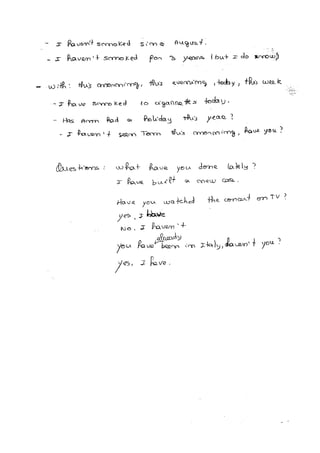 - I haven't smoked since August.
- I haven't smoked for 3 years (but I do now)
- with: this morning, this evening, today, this week
- I have smoked 10 cigarettes today.
- Has Ann had a holiday this year?
- I haven't seen Tom this morning, have you?
Questions: what have you done lately?
I have built a new
Have you watched the on TV?
yes, I have
No. I haven't
already
you have been in Italy, haven't you?
yes, I have.